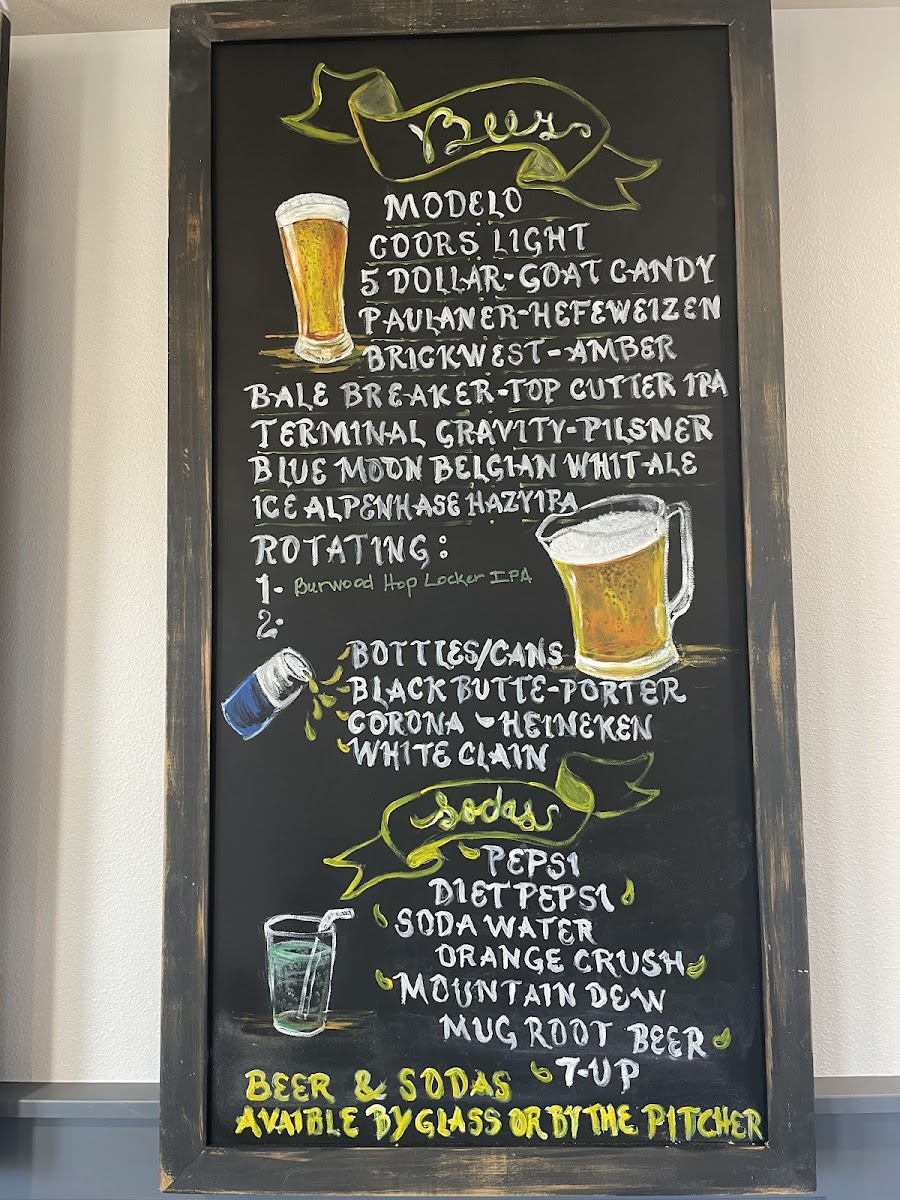 Beer
MODELO
COORS LIGHT
5 DOLLAR-GOAT CANDY
PAULANER-HEFEWEIZEN
BRICKWEST-AMBER
BALE BREAKER-TOP CUTTER IPA
TERMINAL GRAVITY-PILSNER
BLUE MOON BELGIAN WHIT-ALE
ICE ALPENHASE HAZY IPA
ROTATING:
1- Burwood Hop Locker IPA
2-
BOTTLES/CANS
BLACK BUTTE-PORTER
CORONA - HEINEKEN
WHITE CLAIN
Sodas
PEPSI
DIET PEPSI
SODA WATER
ORANGE CRUSH
MOUNTAIN DEW
MUG ROOT BEER
7-UP
BEER & SODAS
AVAIBLE BY GLASS OR BY THE PITCHER